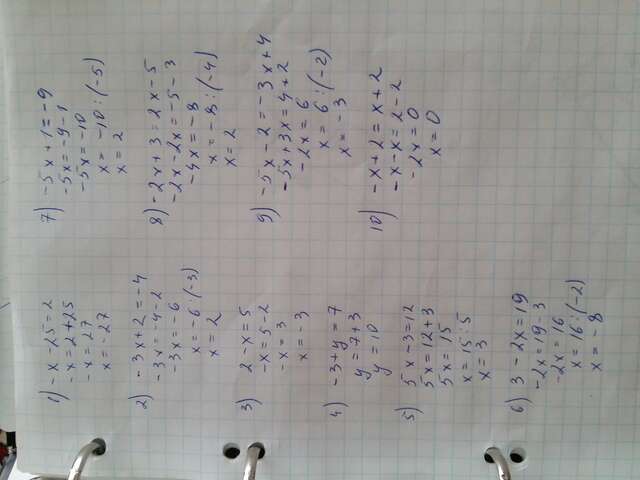 1) -x -25=2
-x=2+25
-x=27
x=-27
2) -3x+2=-4
-3x=-4-2
-3x=-6
x=-6:(-3)
x=2
3) 2-x=5
-x=5-2
-x=3
x=-3
4) -3+y=7
y=7+3
y=10
5) 5x-3=12
5x=12+3
5x=15
x=15:5
x=3
6) 3-2x=19
-2x=19-3
-2x=16
x=16:(-2)
x=-8
7) -5x+1=-9
-5x=-9-1
-5x=-10
x=-10:(-5)
x=2
8) -2x+3=2x-5
-2x-2x=-5-3
-4x=-8
x=-8:(-4)
x=2
9) -5x-2=-3x+4
-5x+3x=4+2
-2x=6
x=6:(-2)
x=-3
10) -x+2=x+2
-x-x=2-2
-2x=0
x=0